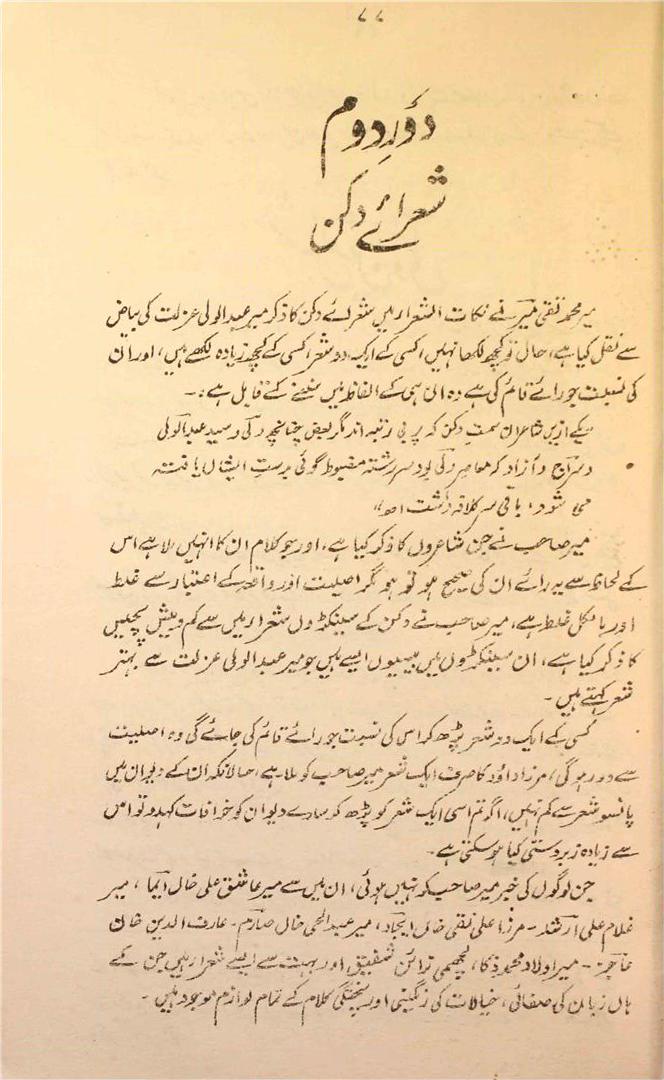 ۷۷
دَورِ دوم
شعرائے دکن
میر محمد تقی میر نے نکات الشعرار میں شعرائے دکن کا ذکر میر عبدالولی عزلت کی بیاض
سے نقل کیا ہے، حال تو کچھ لکھا نہیں، کسی کے ایک، دو شعر، کسی کے کچھ زیادہ لکھے ہیں، اور ان
کی نسبت جو رائے قائم کی ہے وہ ان ہی کے الفاظ میں سننے کے قابل ہے :۔
یکے ازیں شاعران سمت دکن کہ پر بے رتبہ اند مگر بعض چنانچہ ولی و سید عبدالولی
و سراج و آزاد کہ معاصر ولی بود سر رشتہ مضبوط گوئی بدست ایشاں یافتہ
می شود، باقی سر کلافہ داشت اھ"
میر صاحب نے جن شاعروں کا ذکر کیا ہے، اور جو کلام ان کا انہیں ملا ہے اس
کے لحاظ سے یہ رائے ان کی صحیح ہو تو ہو مگر اصلیت اور واقعہ کے اعتبار سے غلط
اور بالکل غلط ہے، میر صاحب نے دکن کے سینکڑوں شعرار میں سے کم و بیش پچیس
کا ذکر کیا ہے، ان سینکڑوں میں بیسیوں ایسے ہیں جو میر عبدالولی عزلت سے بہتر
شعر کہتے ہیں۔
کسی کے ایک دو شعر پڑھ کر اس کی نسبت جو رائے قائم کی جائے گی وہ اصلیت
سے دور ہو گی، مرزا داؤد کا صرف ایک شعر میر صاحب کو ملا ہے، حالانکہ ان کے دیوان میں
پانسو شعر سے کم نہیں، اگر تم اسی ایک شعر کو پڑھ کر سارے دیوان کو خرافات کہدو تو اس
سے زیادہ زبردستی کیا ہو سکتی ہے۔
جن لوگوں کی خبر میر صاحب کو نہیں ہوئی، ان میں سے میر عاشق علی خاں ایما، میر
غلام علی ارشد۔ مرزا علی نقی خاں ایجاد، میر عبدالحی خاں صارم۔ عارف الدین خان
عاجز۔ میر اولاد محمد ذکا، لچھمی نرائن شفیق اور بہت سے ایسے شعرار ہیں جن کے
ہاں زبان کی صفائی، خیالات کی رنگینی اور پختگی کلام کے تمام لوازم موجود ہیں۔